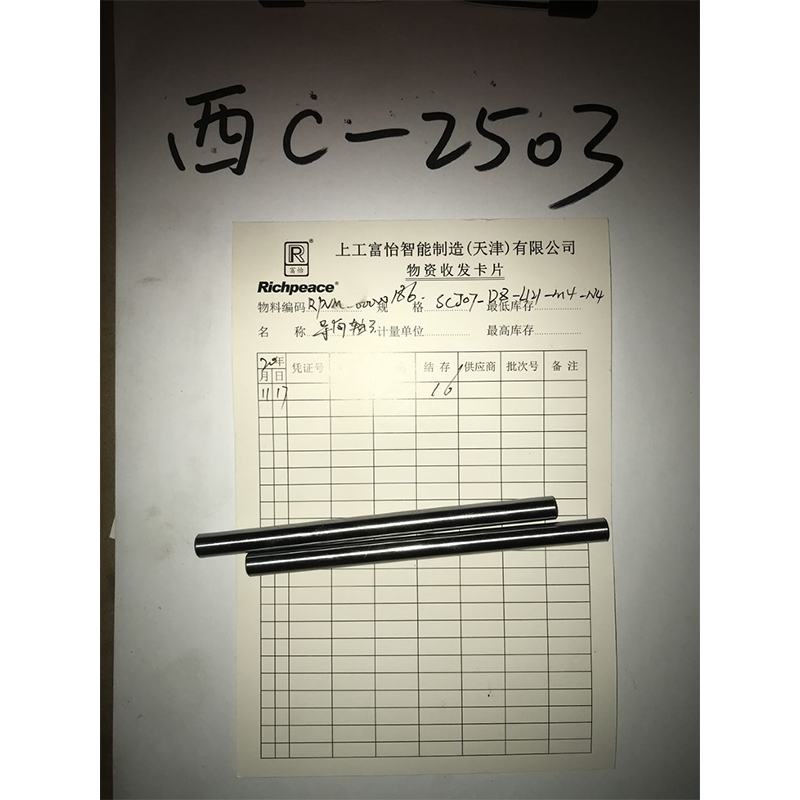 西C-2503
R
富怡
上工富怡智能制造(天津)有限公司
物资收发卡片
Richpeace
物料编码 规格 SCJ07-D8-L121-M4-N4 最低库存
名称 导向轴 计量单位 最高库存
20年 凭证号 结存 供应商 批次号 备注
月 日
11 17 16